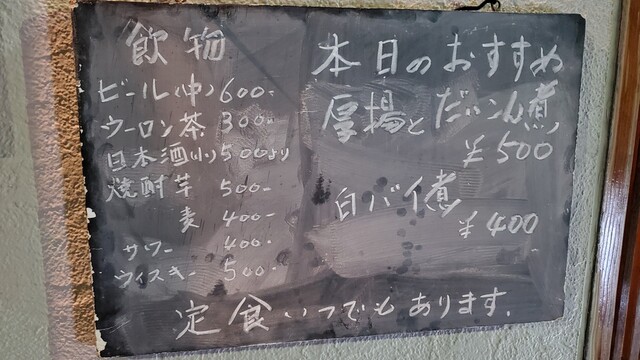 飲物
ビール(中) 600-
ウーロン茶 300-
日本酒(小) 500より
焼酎芋 500-
麦 400-
サワー 400-
ウィスキー 500-
本日のおすすめ
厚場とだいこん煮
¥500
白バイ煮
¥400
定食いつでもあります.